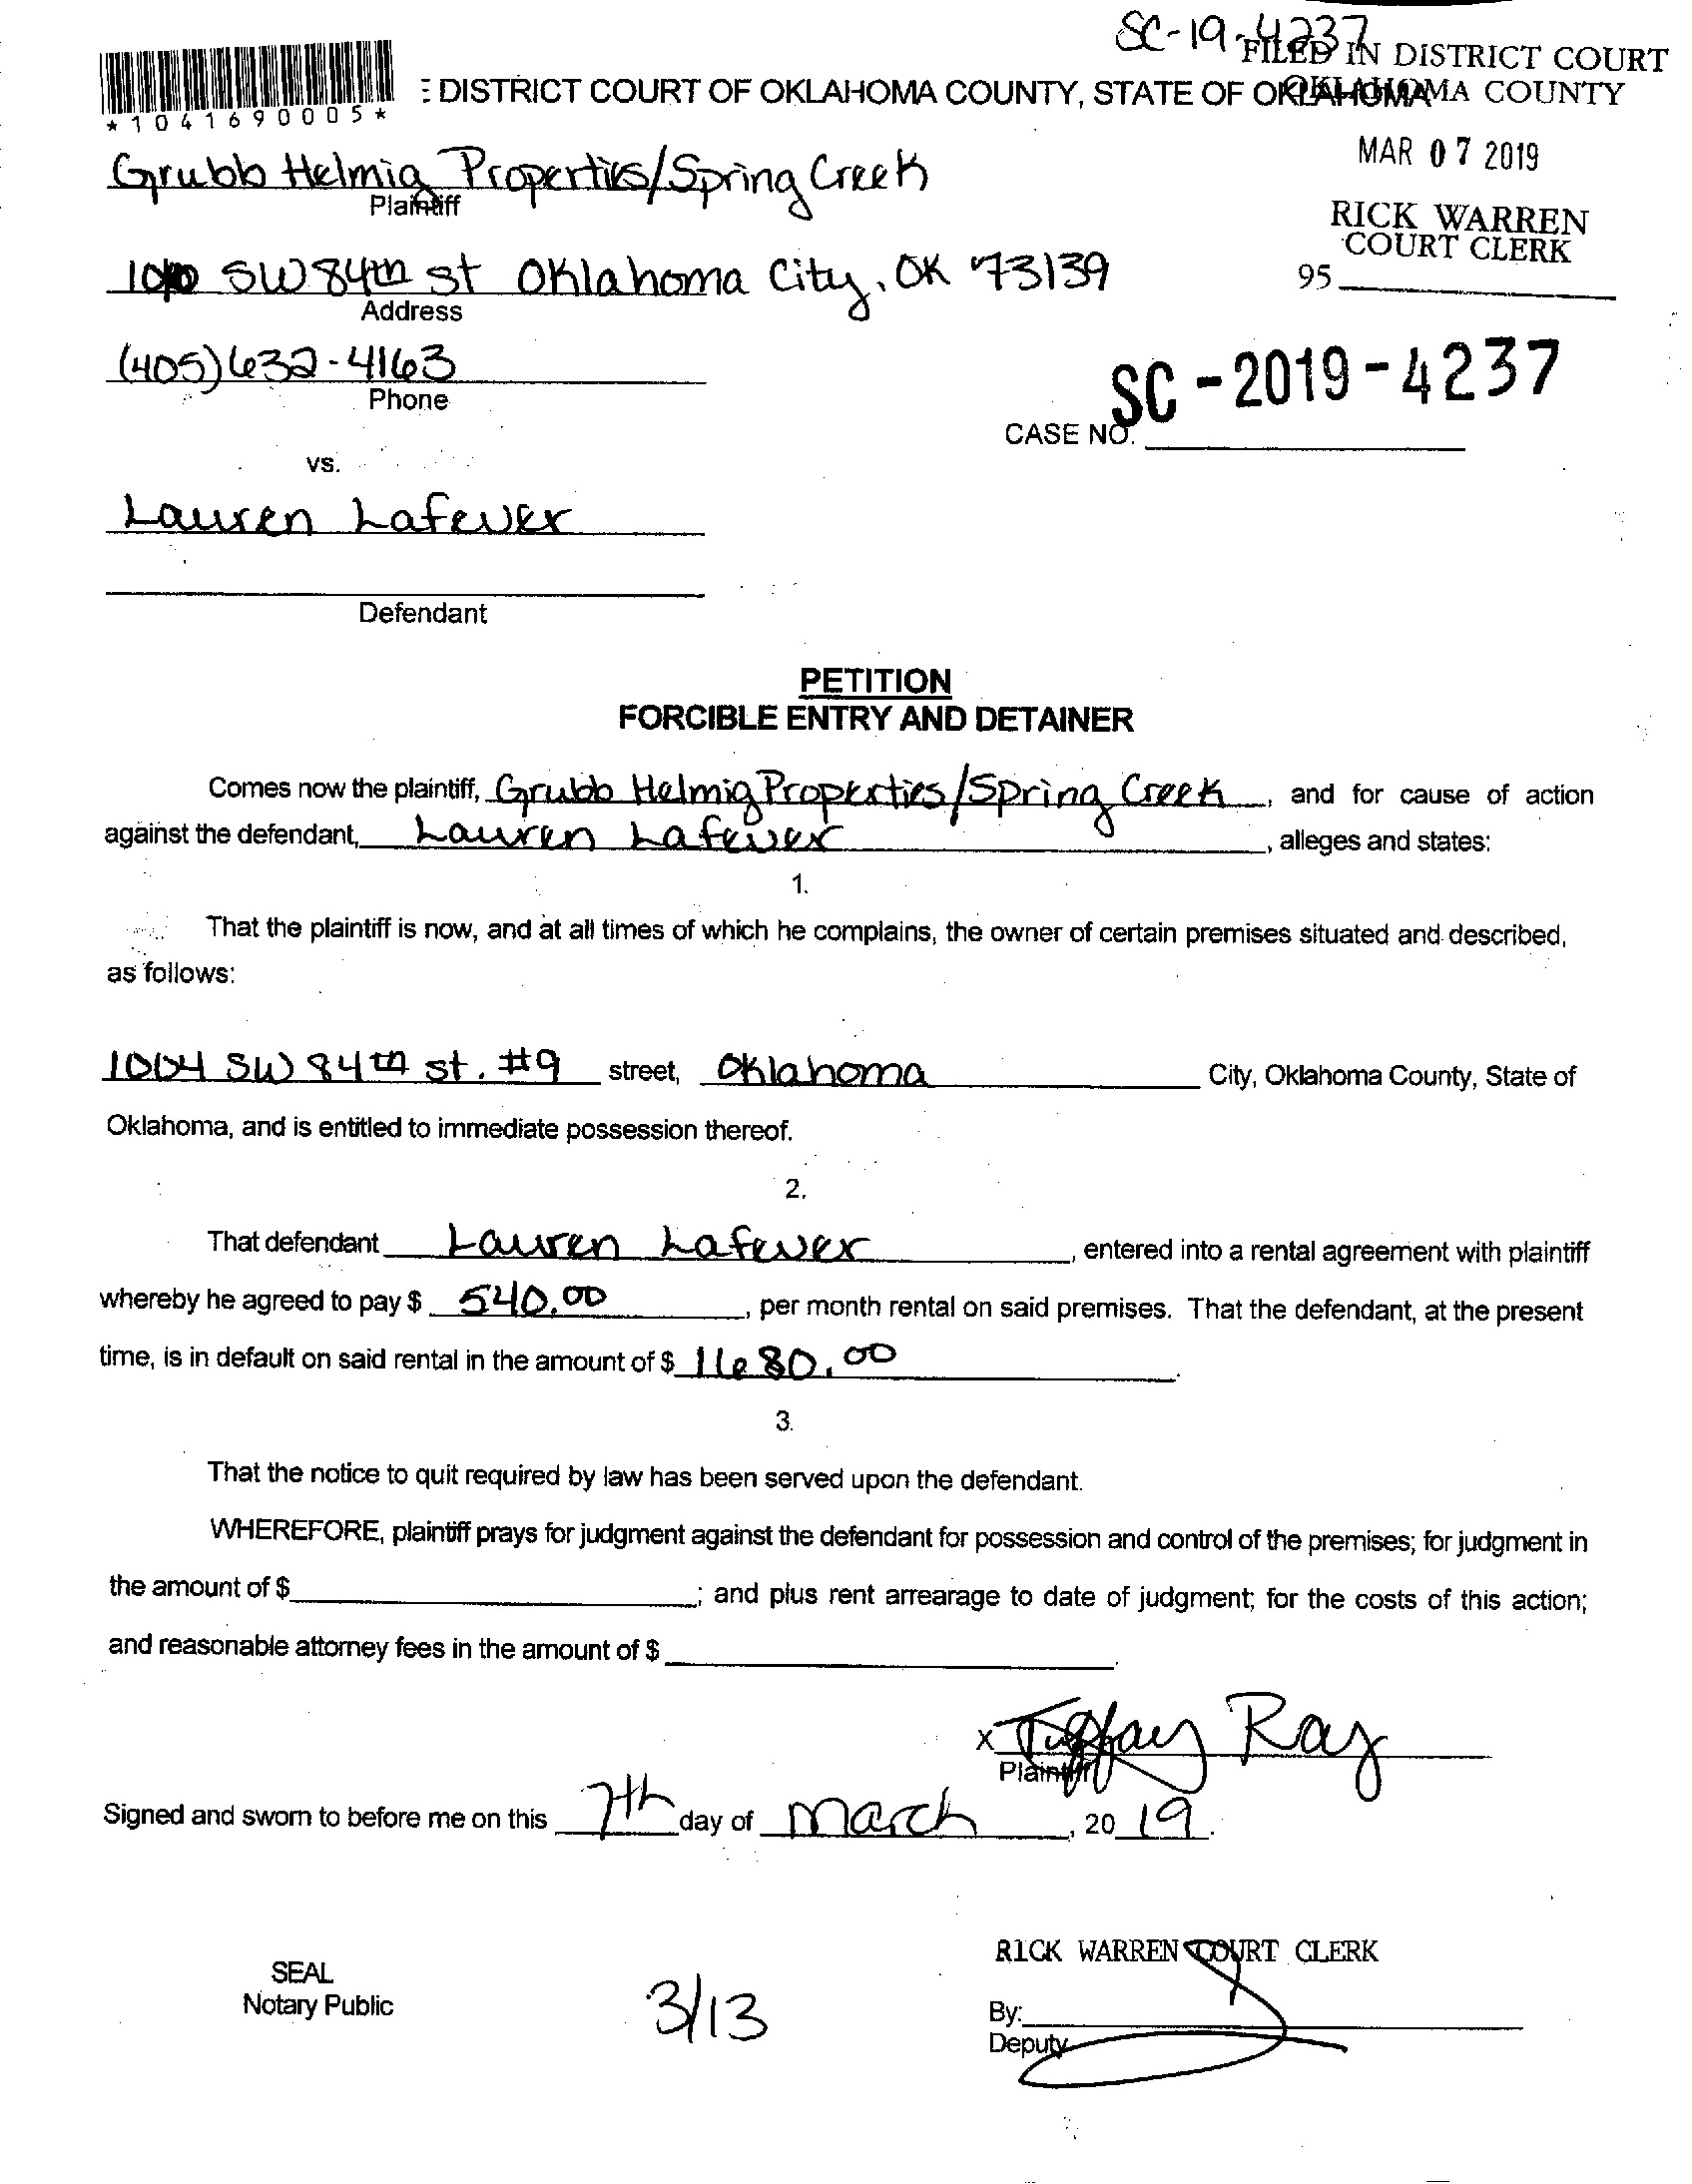 SC-19-4237
FILED IN DISTRICT COURT
OKLAHOMA COUNTY
DISTRICT COURT OF OKLAHOMA COUNTY, STATE OF OKLAHOMA
*1041690005*
MAR 07 2019
Grubb Helmig Properties/Spring Creek
Plaintiff
RICK WARREN
COURT CLERK
95
SW 84th st Oklahoma City, OK 73139
Address
(405) 632-4163
Phone
SC-2019-4237
CASE NO.
vs.
Lauren Lafever
Defendant
PETITION
FORCIBLE ENTRY AND DETAINER
Comes now the plaintiff, Grubb Helmig Properties/Spring Creek, and for cause of action
against the defendant, Lauren Lafever, alleges and states:
1.
That the plaintiff is now, and at all times of which he complains, the owner of certain premises situated and described,
as follows:
1004 SW 84th st. #9 street, Oklahoma City, Oklahoma County, State of
Oklahoma, and is entitled to immediate possession thereof.
2.
That defendant Lauren Lafever, entered into a rental agreement with plaintiff
whereby he agreed to pay $ 540.00, per month rental on said premises. That the defendant, at the present
time, is in default on said rental in the amount of $ 1680.00.
3.
That the notice to quit required by law has been served upon the defendant.
WHEREFORE, plaintiff prays for judgment against the defendant for possession and control of the premises; for judgment in
the amount of $; and plus rent arrearage to date of judgment; for the costs of this action;
and reasonable attorney fees in the amount of $.
x Tiffany Ray
Plaintiff
Signed and sworn to before me on this 7th day of march, 2019.
RICK WARREN COURT CLERK
SEAL
Notary Public
3/13
By:
Deputy